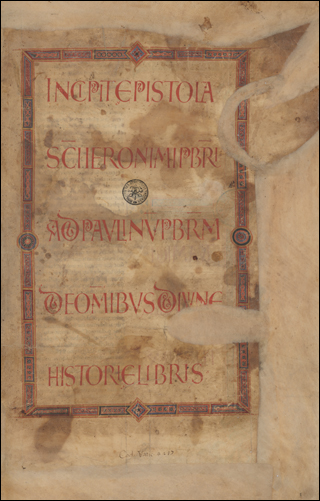 INCIPIT EPISTOLA
SCI HERONIMI PBRI
AD PAULINUM PBRM
DE OMIBUS DIVINE
HISTORIE LIBRIS